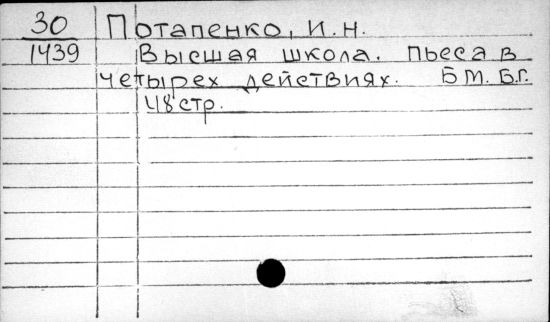 30 Потапенко, И.Н.
1439 Высшая школа. Пьеса в
четырех действиях. Б.М. Б.Г.
48 стр.